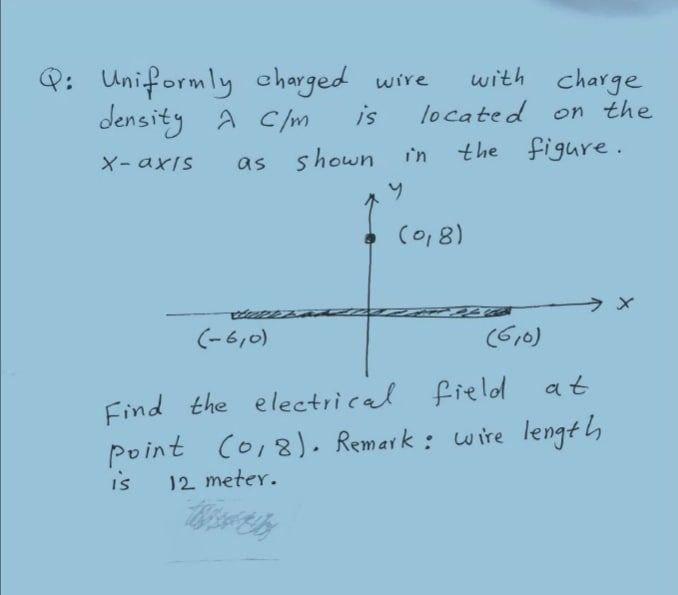 Q: Uniformly charged wire with charge
density λ C/m is located on the
x-axis as shown in the figure.
y
(0,8)
x
(-6,0) (6,0)
Find the electrical field at
point (0,8). Remark: wire length
is 12 meter.